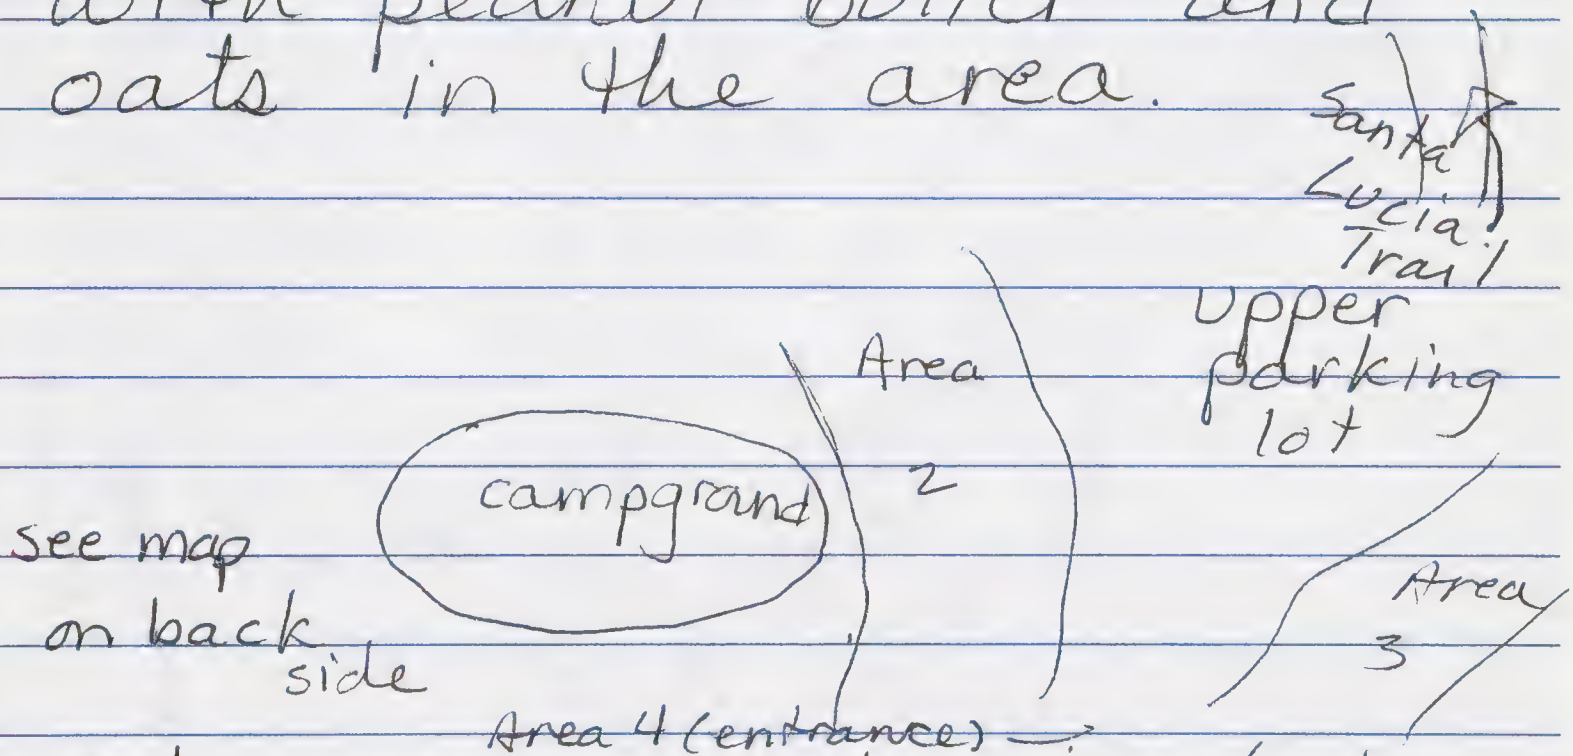 with peanut butter and
oats in the area.
Santa
Lucia
Trail
upper
parking
lot
Area
2
campground
see map
on back
side
Area
3
Area 4 (entrance) →